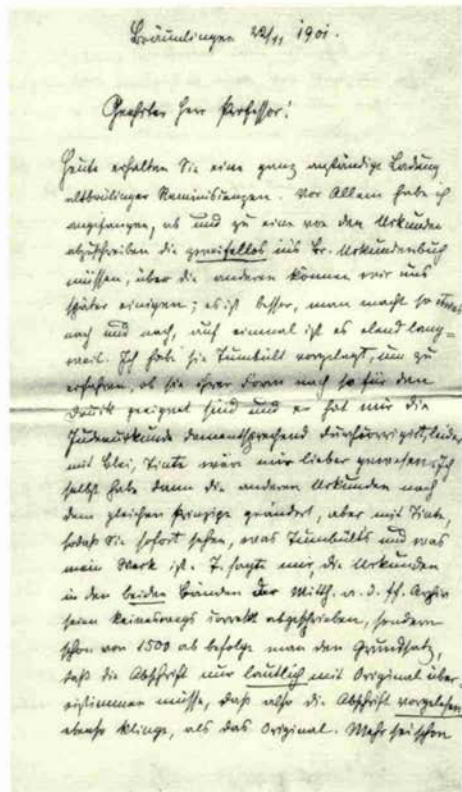 Bräunlingen 22/11 1901.
Geehrter Herr Professor!
Heute erhalten Sie eine ganz anständige Ladung
altbrülinger Reminiszenzen. Vor Allem habe ich
angefangen, ab und zu eine von den Urkunden
abzuschreiben die zweifellos ins Br. Urkundenbuch
müssen, über die anderen können wir uns
später einigen; es ist besser, man macht so etwas
nach und nach, auf einmal ist es elend lang=
weil. Ich habe sie Tumbült vorgelegt, um zu
erfahren, ob sie ihrer Form nach so für den
Druck geeignet sind und er hat mir die
Judenurkunde dementsprechend durchkorrigirt, leider
mit Blei, Tinte wäre mir lieber gewesen. Ich
selbst habe dann die anderen Urkunden nach
dem gleichen Prinzipe geändert, aber mit Tinte,
sodaß Sie sofort sehen, was Tumbülts und was
mein Werk ist. T. sagte mir, die Urkunden
in den beiden Bänden der Mitth. a. d. ff. Archiv
seien keineswegs correkt abgeschrieben, sondern
schon von 1500 ab befolge man den Grundsatz,
daß die Abschrift nur lautlich mit Original über=
einstimmen müsse, daß also die Abschrift vorgelesen
ebenso klinge, als das Original. Mehr sei schon